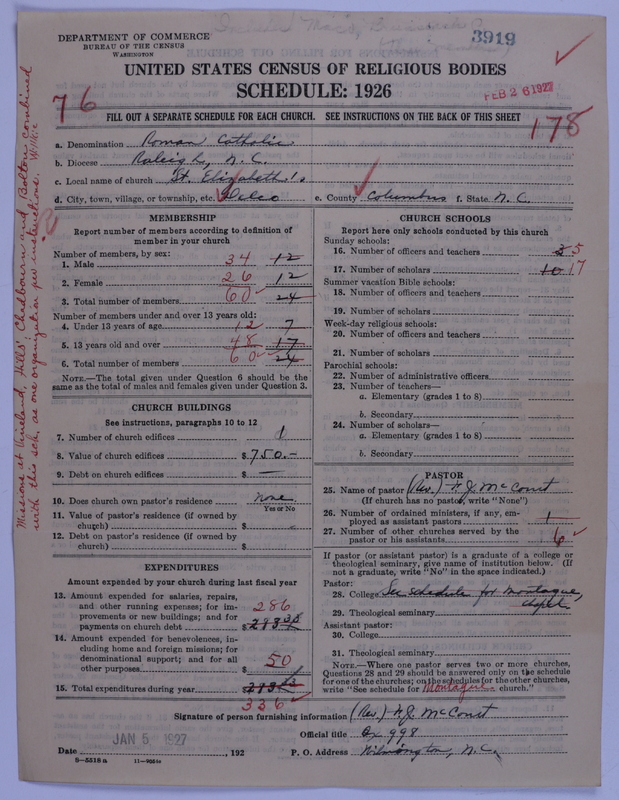 DEPARTMENT OF COMMERCE
BUREAU OF THE CENSUS
WASHINGTON
3919
UNITED STATES CENSUS OF RELIGIOUS BODIES
SCHEDULE: 1926
FEB 26 1927
76
178
FILL OUT A SEPARATE SCHEDULE FOR EACH CHURCH. SEE INSTRUCTIONS ON THE BACK OF THIS SHEET
a. Denomination Roman Catholic
b. Diocese Raleigh, N.C.
c. Local name of church St. Elizabeth's
d. City, town, village, or township, etc. Delco e. County Columbus f. State N.C.
Missions at Vineland, Hills', Chadbourn and Bolton combined
with this sch. as one organization per instructions. Willie
MEMBERSHIP
Report number of members according to definition of
member in your church
Number of members, by sex:
1. Male 34 12
2. Female 26 12
3. Total number of members 60 24
Number of members under and over 13 years old:
4. Under 13 years of age 12 7
5. 13 years old and over 48 17
6. Total number of members 60 24
NOTE.—The total given under Question 6 should be the
same as the total of males and females given under Question 3.
CHURCH BUILDINGS
See instructions, paragraphs 10 to 12
7. Number of church edifices 1
8. Value of church edifices $750.—
9. Debt on church edifices $ —
10. Does church own pastor's residence none
Yes or No
11. Value of pastor's residence (if owned by
church) $
12. Debt on pastor's residence (if owned by
church) $
EXPENDITURES
Amount expended by your church during last fiscal year
13. Amount expended for salaries, repairs,
and other running expenses; for im-
provements or new buildings; and for
payments on church debt $ 286
14. Amount expended for benevolences, in-
cluding home and foreign missions; for
denominational support; and for all
other purposes $ 50
15. Total expenditures during year $
336
CHURCH SCHOOLS
Report here only schools conducted by this church
Sunday schools:
16. Number of officers and teachers 3 5
17. Number of scholars 10 17
Summer vacation Bible schools:
18. Number of officers and teachers
19. Number of scholars
Week-day religious schools:
20. Number of officers and teachers
21. Number of scholars
Parochial schools:
22. Number of administrative officers
23. Number of teachers—
a. Elementary (grades 1 to 8)
b. Secondary
24. Number of scholars—
a. Elementary (grades 1 to 8)
b. Secondary
PASTOR
25. Name of pastor (Rev.) F.J. McCourt
(If church has no pastor, write "None")
26. Number of ordained ministers, if any, em-
ployed as assistant pastors 1
27. Number of other churches served by the
pastor or his assistants 6
If pastor (or assistant pastor) is a graduate of a college or
theological seminary, give name of institution below. (If
not a graduate, write "No" in the space indicated.)
Pastor:
28. College See schedule for Montague,
chapel
29. Theological seminary
Assistant pastor:
30. College
31. Theological seminary
NOTE.—Where one pastor serves two or more churches,
Questions 28 and 29 should be answered only on the schedule
for one of the churches; on the schedules for the other churches,
write "See schedule for Montague church."
Signature of person furnishing information (Rev.) F.J. McCourt
Official title Bx 998
JAN 5 1927
Date , 192 P. O. Address Wilmington, N.C.
8—5518 a 11—9051c